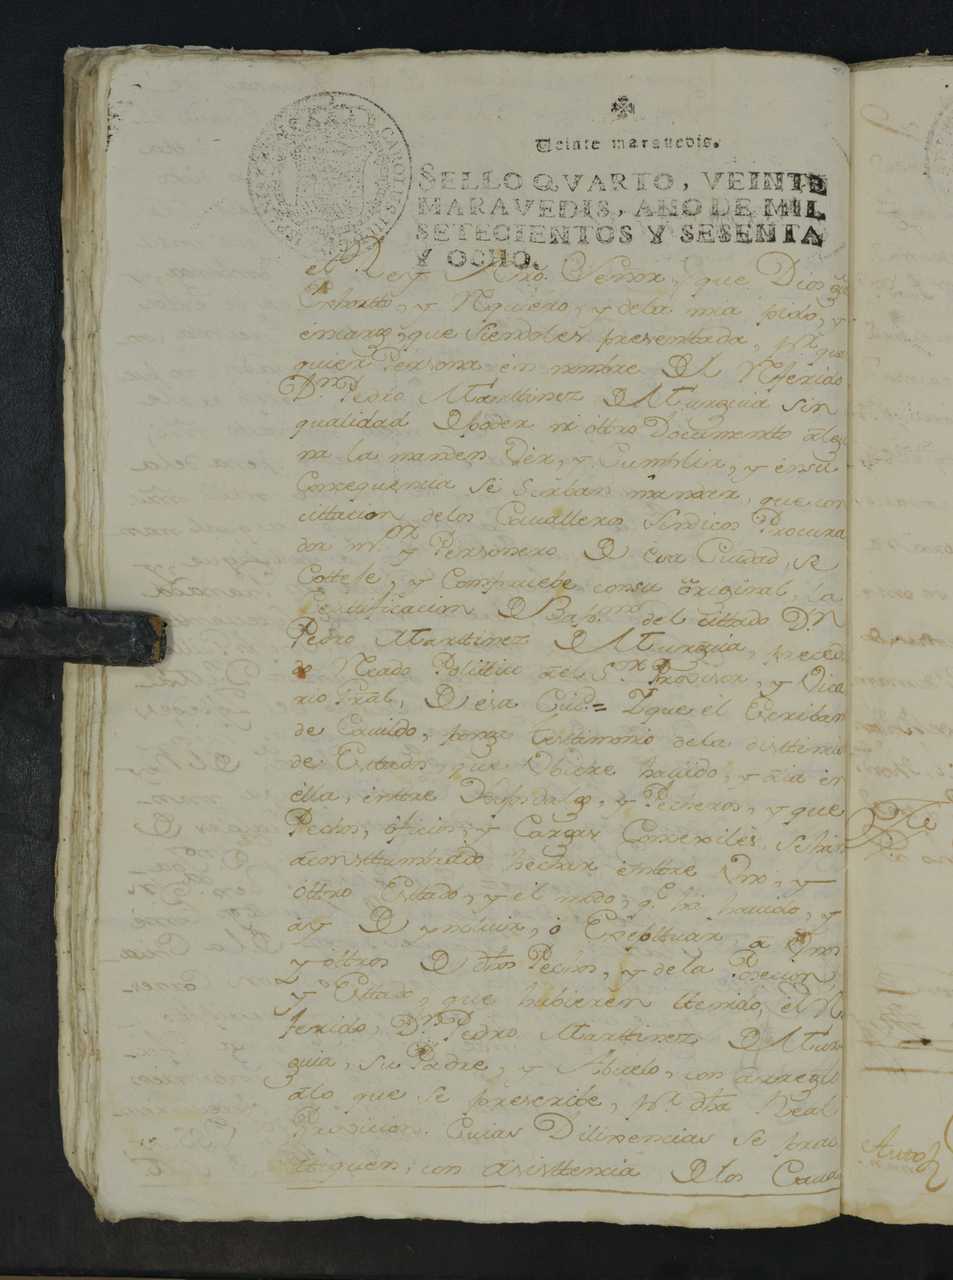 Veinte maravedis.
SELLO QVARTO, VEINTE
MARAVEDIS, AÑO DE MIL
SETECIENTOS Y SESENTA
Y OCHO.
el Rey Nrõ. Señor, que Dios gũe
Exhortto, y Rquiero, y dela mia pido, y
encargo que siendoles presenttada, pr. qual
quier Persona en nombre Del Rferido
Dn. Pedro Marttinez De Murguia sin
qualidad De poder ni ottro Documentto algu
na la manden Ver, y Cumplir, y en su
Consequencia se sirban mandar, que con
cittacion delos Cavalleros Sindicos Procura
dor mr. y Personero De esa Ciudad, se
Cotteje, y Compruebe con su original, la
Certtificacion De Bapmo. del cittado Dn.
Pedro Marttinez De Murguia, preced
do Rcado Politico al Sr. Provisor, y Vica
rio Gral, De esa Ciud.= Y que el Escriban
de Cavildo, ponga testtimonio dela disttincio
de Estados, que Ubiere havido, y aia en
ella, enttre Dehosdalgo, y Pecheros, y que
Pechos, oficios, y Cargas Concexiles se han
acosttumbrado hechar enttre Uno, y
ottro Estado, y el modo, qe. ha havido, y
ay De yncluir, ó Exceptuar, a Unos
y ottros De dhõs Pechos, y dela Posesion
y Estado, que hubieren ttenido, el R
ferido, Dn. Pedro Marttinez De Mur
guia, su Padre, y Abuelo, con arreglo
alo que se prescribe, pr. dha Real
Provicion. Cuias Dilixencias se prac
ttiquen, con asisttencia De los Cava
Auto